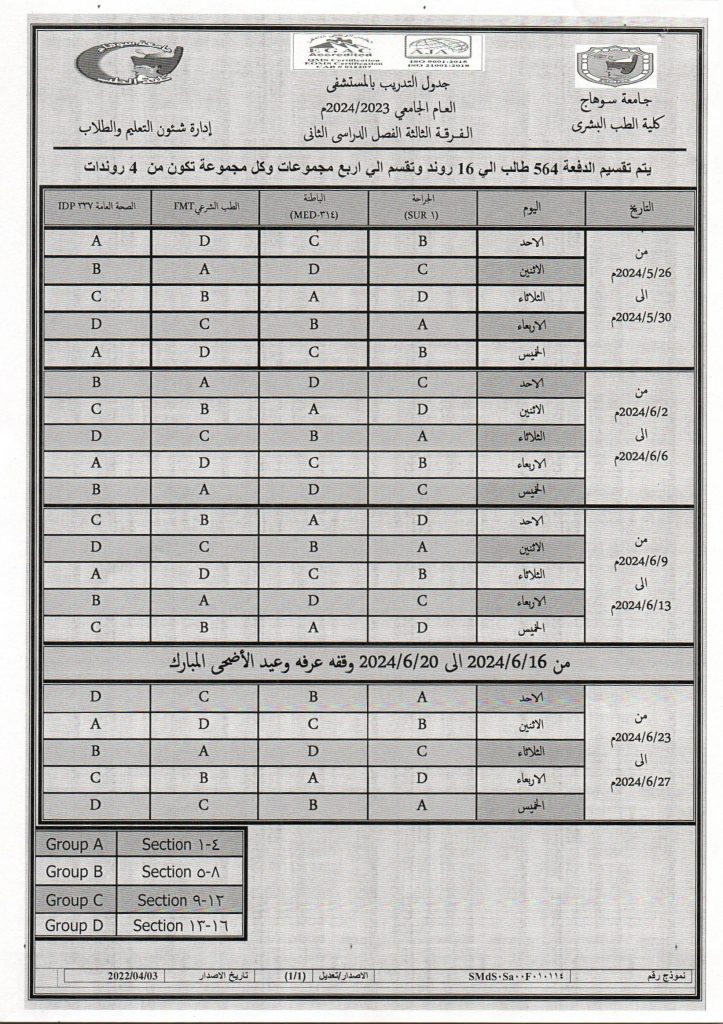 جامعة سوهاج
كلية الطب البشرى
EGAC
Accredited
QMS Certification
EOMS Certification
CAB # 012207
AJA
ISO 9001:2015
ISO 21001:2018
جدول التدريب بالمستشفى
العام الجامعي 2024/2023م
الفرقة الثالثة الفصل الدراسى الثانى
جامعة سوهاج
كلية الطب
إدارة شئون التعليم والطلاب
يتم تقسيم الدفعة 564 طالب الي 16 روند وتقسم الي اربع مجموعات وكل مجموعة تكون من 4 روندات
التاريخ | اليوم | الجراحة (SUR ١) | الباطنة (MED-٣١٤) | الطب الشرعي FMT | الصحة العامة IDP ٣٣٧
من 2024/5/26م الى 2024/5/30م
الاحد | B | C | D | A
الاثنين | C | D | A | B
الثلاثاء | D | A | B | C
الاربعاء | A | B | C | D
الخميس | B | C | D | A
من 2024/6/2م الى 2024/6/6م
الاحد | C | D | A | B
الاثنين | D | A | B | C
الثلاثاء | A | B | C | D
الاربعاء | B | C | D | A
الخميس | C | D | A | B
من 2024/6/9م الى 2024/6/13م
الاحد | D | A | B | C
الاثنين | A | B | C | D
الثلاثاء | B | C | D | A
الاربعاء | C | D | A | B
الخميس | D | A | B | C
من 2024/6/16 الى 2024/6/20 وقفه عرفه وعيد الأضحى المبارك
من 2024/6/23م الى 2024/6/27م
الاحد | A | B | C | D
الاثنين | B | C | D | A
الثلاثاء | C | D | A | B
الاربعاء | D | A | B | C
الخميس | A | B | C | D
Group A | Section ١-٤
Group B | Section ٥-٨
Group C | Section ٩-١٢
Group D | Section ١٣-١٦
نموذج رقم | SMdS٠Sa٠٠F٠١٠١١٤ | الاصدار/تعديل | (1/1) | تاريخ الاصدار | 2022/04/03